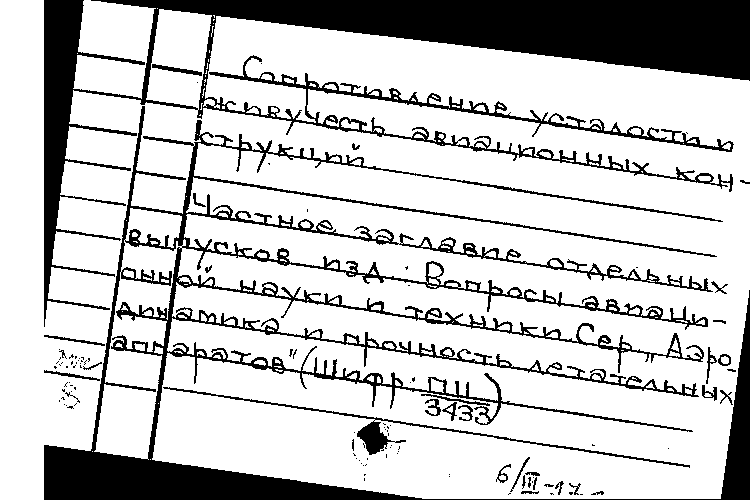 Сопротивление усталости и
живучесть авиационных кон-
струкций.
Частное заглавие отдельных
выпусков изд.: Вопросы авиаци-
онной науки и техники. Сер. „Аэро-
динамика и прочность летательных
аппаратов" (Шифр: ПII
3433)
6/III-